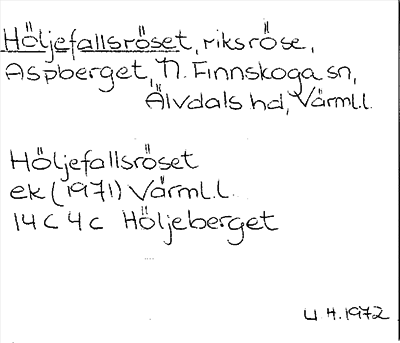 Höljefallsröset, riksröse,
Aspberget, N. Finnskoga sn,
Älvdals hd, Värml.l.
Höljefallsröset
ek (1971) Värml.l.
14 C 4 c Höljeberget
U H. 1972